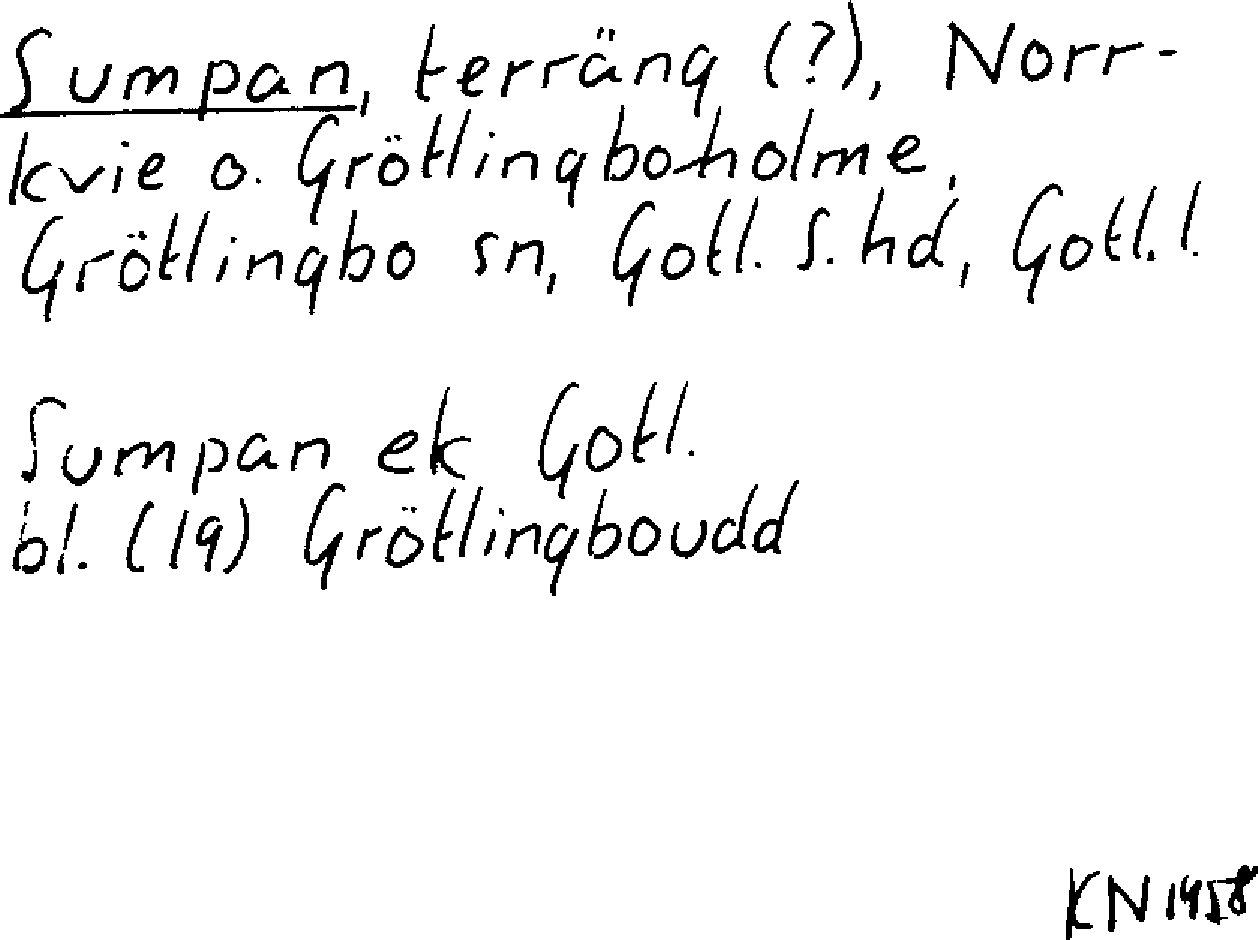 Sumpan, terräng (?), Norr-
kvie o. Grötlingboholme,
Grötlingbo sn, Gotl. S. hd, Gotl. l.
Sumpan ek Gotl.
bl. (19) Grötlingboudd
KN 1958